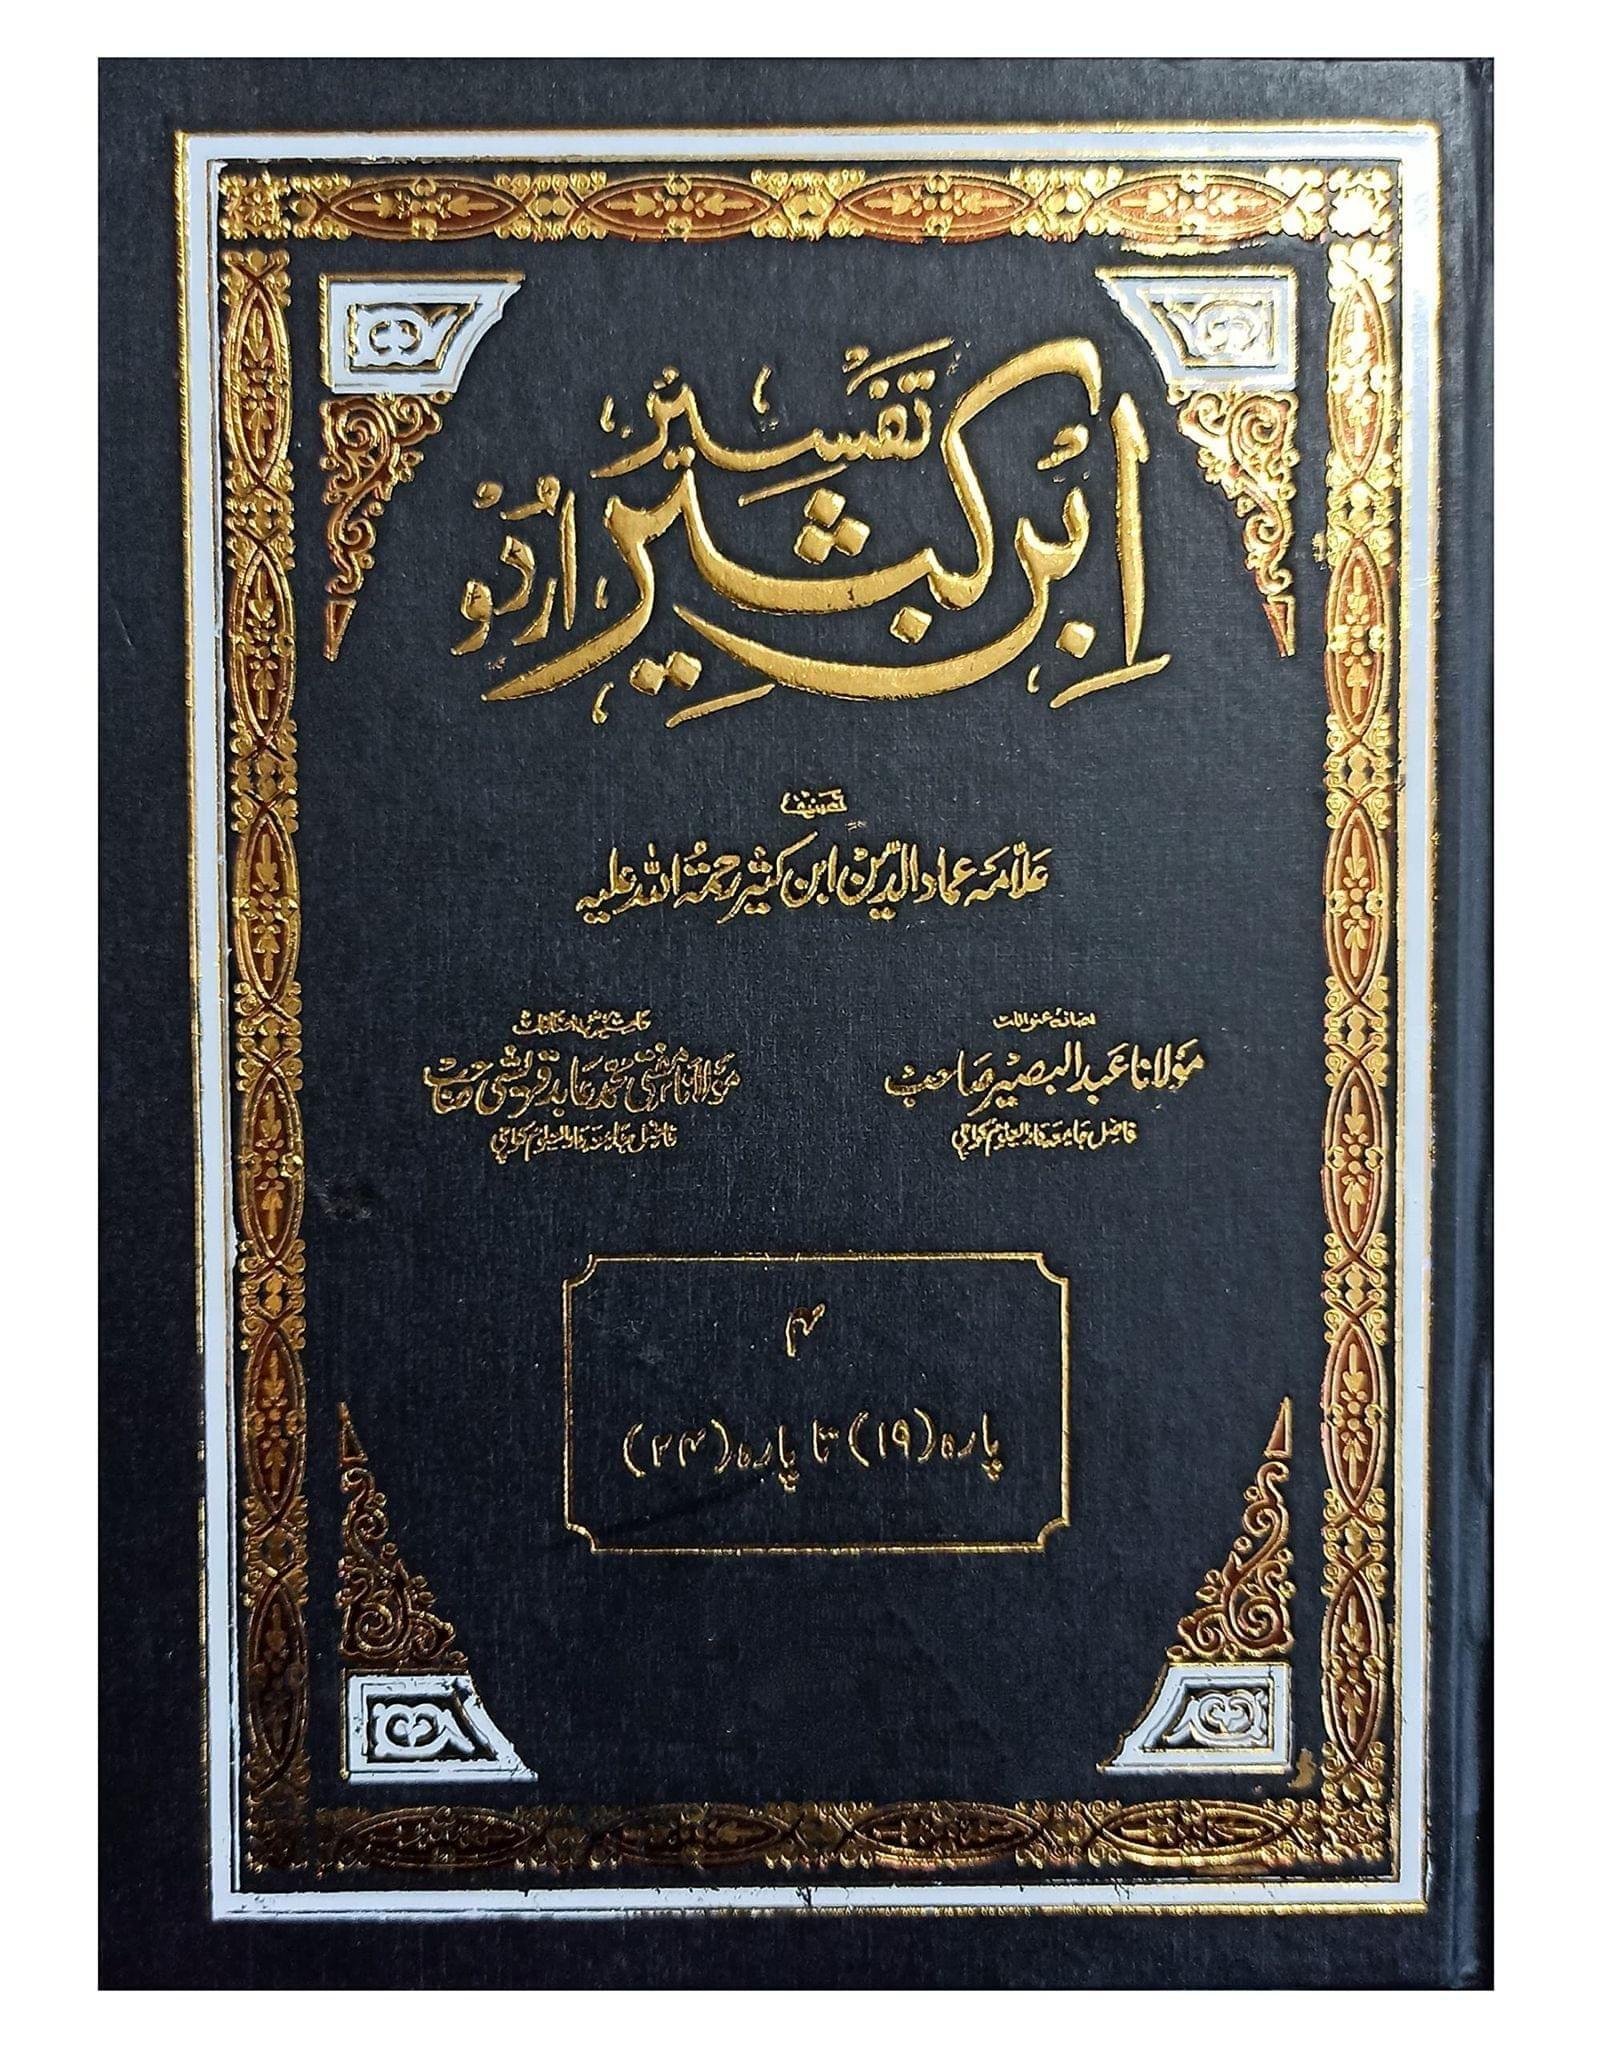 تفسیر
ابن کثیر اردو
تصنیف
علامہ عماد الدین ابن کثیر رحمۃ اللہ علیہ
اضافہ عنوانات
مولانا عبد البصیر صاحب
فاضل جامعہ دارالعلوم کراچی
مولانا مفتی محمد عابد قریشی صاحب
فاضل جامعہ دارالعلوم کراچی
۴
پارہ (۱۹) تا پارہ (۲۴)